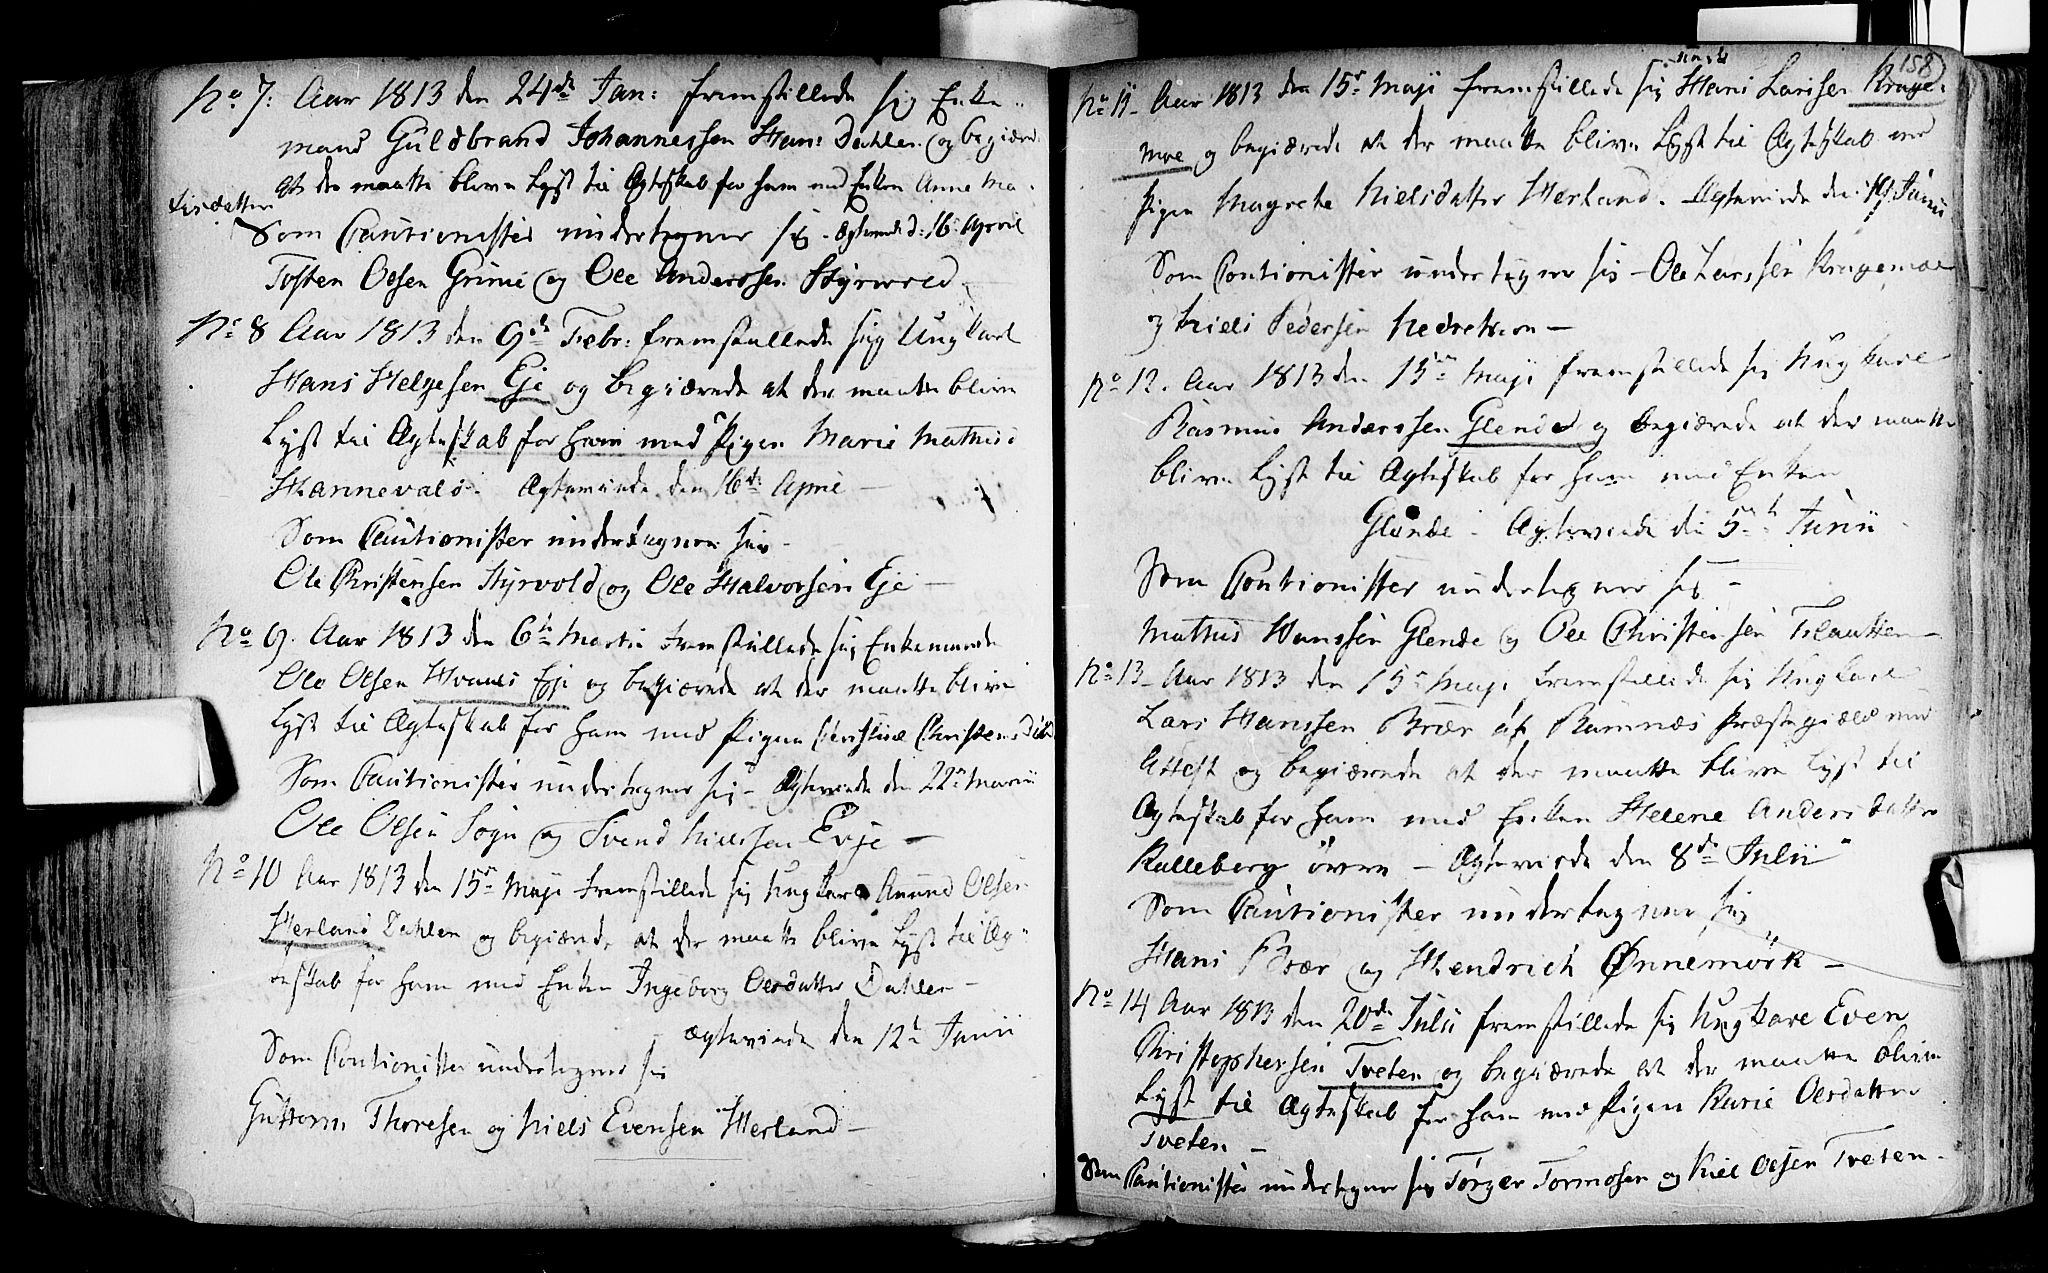 No 7: Aar 1813 den 24de Jan: fremstillede sig Enke-
mand Guldbrand Johannessen Dahlen og begiærede
at der maatte blive lyst til Ægteskab for ham med Enken Anne Ma-
tisdatter
Som Cautionister undertegner sig. Ægteviede d: 16 April
Tosten Olsen Grime og Ole Anderssen Styrvold
No 8 Aar 1813 den 9de Febr: fremstillede sig Ungkarl
Hans Helgesen Eje og begiærede at der maatte blive
lyst til Ægteskab for ham med Pigen Marie Mathis:
Hannevold. Ægteviede den 16de April
Som Cautionister undertegner sig
Ole Christensen Styrvold og Ole Halvorsen Eje
No 9. Aar 1813 den 6te Martii fremstillede sig Enkemand
Ole Olsen Hvaals Eje og begiærede at der maatte blive
lyst til Ægteskab for ham med Pigen Christine Christensdatt
Som Cautionister undertegner sig - Ægteviede den 22 Martii
Ole Olsen Sogn og Svend Nielsen Evje
No 10 Aar 1813 den 15de Maji fremstillede sig Ungkarl Amund Olsen
Herland Dahlen og begiærede at der maatte blive lyst til Æg-
teskab for ham med Enken Ingeborg Olsdatter Dahlen
Ægteviede den 12te Junii
Som Cautionister undertegner sig
Guttorm Thoresen og Niels Evensen Herland
158
No 11 Aar 1813 den 15de Maji fremstillede sig Hans Larssen Krage-
moe og begiærede at der maatte blive lyst til Ægteskab med
Pigen Magrete Nielsdatter Herland. Ægteviede den 19 Junii
Som Cautionister undertegner sig - Ole Larssen Kragemoe
og Niels Pedersen
No 12. Aar 1813 den 15de Maji fremstillede sig Ungkarl
Rasmus Anderssen Glende og begiærede at der maatte
blive lyst til Ægteskab for ham med Enken
Glende - Ægteviede den 5te Junii
Som Cautionister undertegner sig -
Mathis Hanssen Glende og Ole Christensen
No 13 Aar 1813 den 15de Maji fremstillede sig Ungkarl
Lars Hanssen Bræ af Ramnæs Præstegield med
Attest og begiærede at der maatte blive lyst til
Ægteskab for ham med Enken Helene Andersdatter
Kalleberg øvre - Ægteviede den 8de Julii
Som Cautionister undertegner sig
Hans Bræ og Hendrich Ønnemörk
No 14 Aar 1813 den 20de Julii fremstillede sig Ungkarl Even
Christophersen Tveten og begiærede at der maatte blive
lyst til Ægteskab for ham med Pigen Karie Olsdatter
Tveten
Som Cautionister undertegner sig Törger Tormosen og Kiel Olsen Tveten